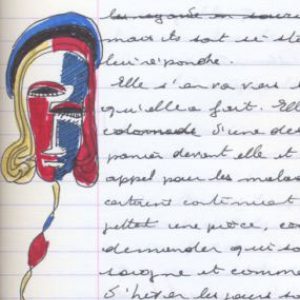 les regarde en sour
mais ils sont si st
lui répondre.
Elle s'en va vers
qu'elle a fait. Elle
colonnade d'une de
panier devant elle et
appel pour les malad
certains continuent
jettet une pièce, co
demander qui so
soigne et comme
d'hiver les jours so